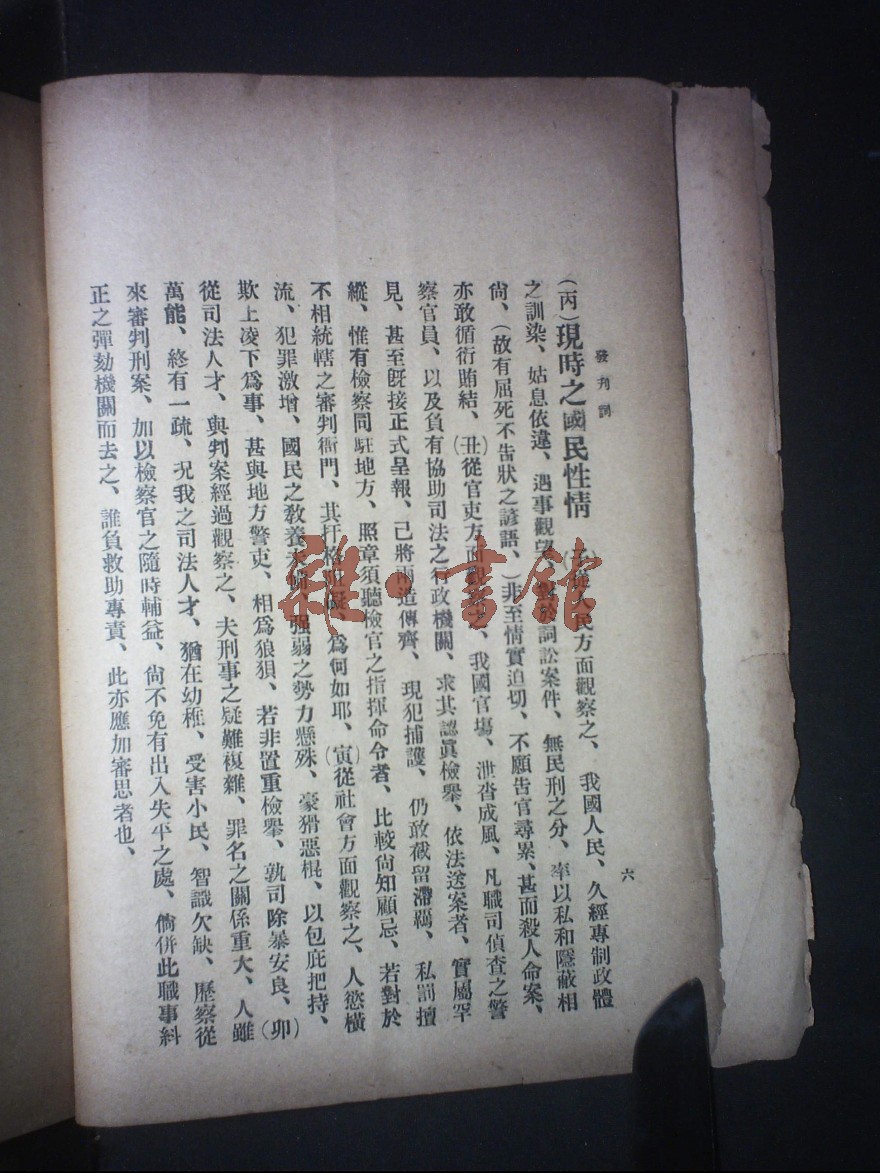 發刊詞
六
(丙)現時之國民性情 (子)從人民方面觀察之、我國人民、久經專制政體
之訓染、姑息依違、遇事觀望、對於詞訟案件、無民刑之分、率以私和隱蔽相
尙、(故有屈死不告狀之諺語、)非至情實迫切、不願告官尋累、甚而殺人命案、
亦敢循衍賄結、(丑)從官吏方面觀察之、我國官塲、泄沓成風、凡職司偵查之警
察官員、以及負有協助司法之行政機關、求其認眞檢舉、依法送案者、實屬罕
見、甚至旣接正式呈報、已將兩造傳齊、現犯捕護、仍敢截留滯羈、私罰擅
縱、惟有檢察同駐地方、照章須聽檢官之指揮命令者、比較尙知顧忌、若對於
不相統轄之審判衙門、其扞格阻礙、爲何如耶、(寅)從社會方面觀察之、人慾橫
流、犯罪激增、國民之敎養未備、强弱之勢力懸殊、豪猾惡棍、以包庇把持、
欺上凌下爲事、甚與地方警吏、相爲狼狽、若非置重檢舉、孰司除暴安良、(卯)
從司法人才、與判案經過觀察之、夫刑事之疑難複雜、罪名之關係重大、人雖
萬能、終有一疏、况我之司法人才、猶在幼稚、受害小民、智識欠缺、歷察從
來審判刑案、加以檢察官之隨時輔益、尙不免有出入失平之處、倘併此職事糾
正之彈劾機關而去之、誰負救助專責、此亦應加審思者也、